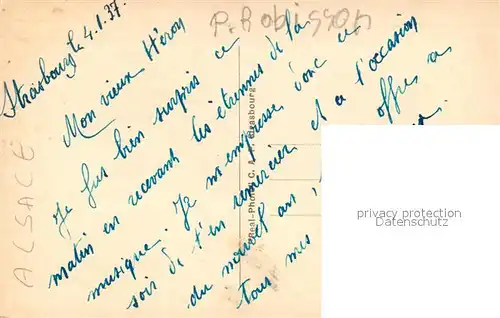 P. Robisson
Strasbourg le 4.1.37.
Mon vieux Héron
Je fus bien surpris ce
matin en recevant les étrennes de la
musique. Je m'empresse donc ce
soir de t'en remercier et à l'occasion
du nouvel an, offres à
tous mes
ALSACE
Real-Photo C. A. P. Strasbourg
privacy protection
Datenschutz